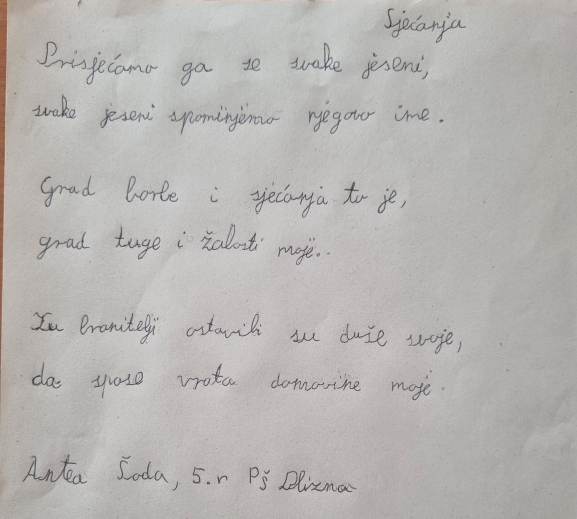 Sjećanja
Prisjećamo ga se svake jeseni,
svake jeseni spominjemo njegovo ime.
Grad borbe i sjećanja to je,
grad tuge i žalosti moje..
Tu branitelji ostavili su duše svoje,
da spase vrata domovine moje.
Antea Šoda, 5.r PŠ Blizna